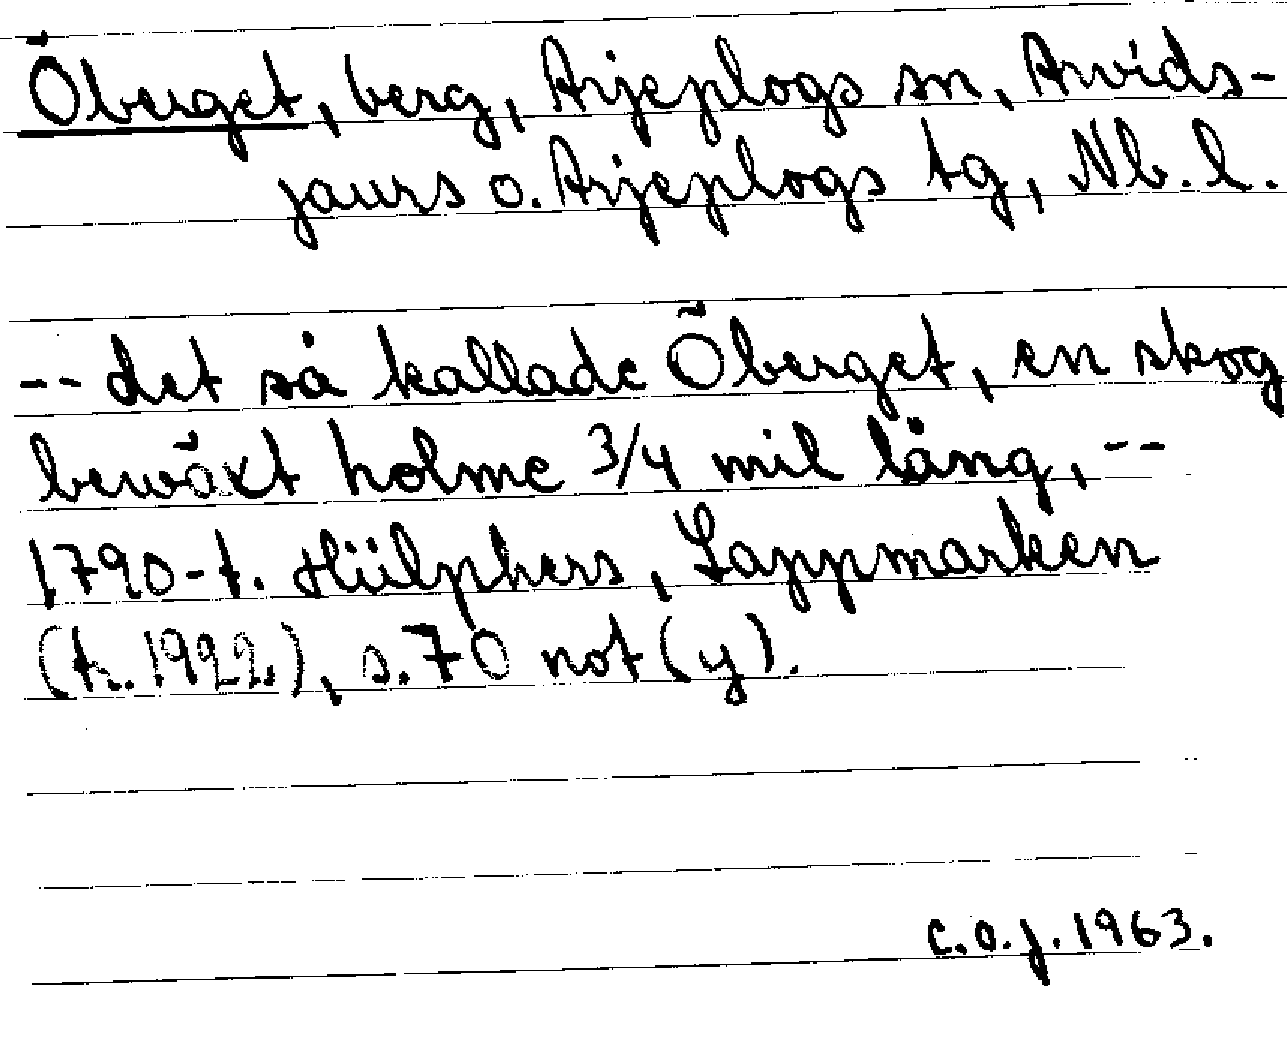 Öberget, berg, Arjeplogs sn, Arvids-
jaurs o. Arjeplogs tg, Nb. l.
-- det så kallade Öberget, en skog
bewäxt holme 3/4 mil lång, --
1790-t. Hülphers, Lappmarken
(tr. 1922), s. 70 not (y).
C.O.J. 1963.